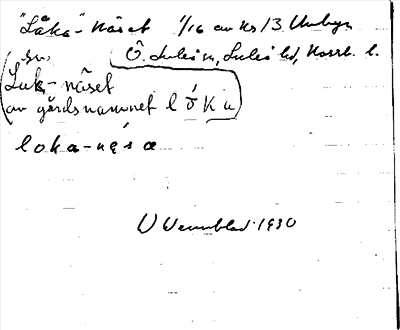 "Låka"-Näset 1/16 av kr 13. Unbyn
sv. Ö. Luleå sn, Luleå td, Norrb. l.
Luk-näset
av gårdsnamnet lóka
loka-nęsa
V Wennblad 1930